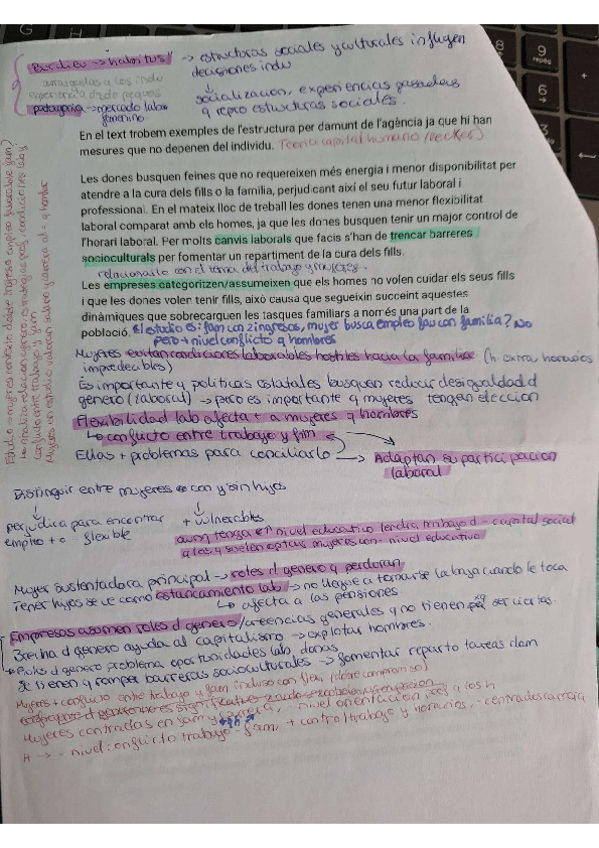 Burdieu → "habitus" → estructuras sociales y culturales influyen
decisiones indv
arraigadas a los indv
experiencia desde peques
socialización, experiencias pasadas
y repro estructuras sociales.
patagonia → mercado lab
femenino
En el text trobem exemples de l'estructura per damunt de l'agència ja que hi han
mesures que no depenen del individu. Teoría capital humano (Becker)
Les dones busquen feines que no requereixen més energia i menor disponibilitat per
atendre a la cura dels fills o la familia, perjudicant així el seu futur laboral i
professional. En el mateix lloc de treball les dones tenen una menor flexibilitat
laboral comparat amb els homes, ja que les dones busquen tenir un major control de
l'horari laboral. Per molts canvis laborals que facis s'han de trencar barreres
socioculturals per fomentar un repartiment de la cura dels fills.
relacionarlo con el tema del trabajo y mujeres.
Les empreses categoritzen/assumeixen que els homes no volen cuidar els seus fills
i que les dones volen tenir fills, això causa que segueixin succeint aquestes
dinàmiques que sobrecarguen les tasques familiars a només una part de la
població. El estudio es: fam con 2 ingresos, mujer busca empleo fav con familia? No
pero + nivel conflicto q hombres
Mujeres evitan condiciones laborables hostiles hacia la familia (h extra, horarios
impredecibles)
Es importante q políticas estatales busquen reducir desigualdad d
género (laboral) → pero es importante q mujeres tengan elección
Flexibilidad lab afecta + a mujeres q hombres
↳ conflicto entre trabajo y fam
Ellas + problemas para conciliarlo → Adaptan su participación
laboral
Distinguir entre mujeres con y sin hijos
perjudica para encontrar
empleo + o - flexible
+ vulnerables
aun tenga en nivel educativo tendra trabajo d - capital social
a las q suelen optar mujeres con - nivel educativo
Mujer sustentadora principal → roles d genero q perduran
Tener hijos se ve como estancamiento lab → no llegue a tomarse la baja cuando le toca
↳ afecta a las pensiones.
Empresas asumen roles d genero/creencias generales q no tienen xq ser ciertas.
Brecha d genero ayuda al capitalismo → explotar hombres.
Roles d genero problema oportunidades lab, donas
Se tienen q romper barreras socioculturales → fomentar reparto tareas dom
Mujeres + conflicto entre trabajo y fam incluso con flexi (doble compromiso)
Mujeres centradas en fam y carrera,
H → - nivel conflicto trabajo - fam, + control trabajo y horarios, - centrades carrera